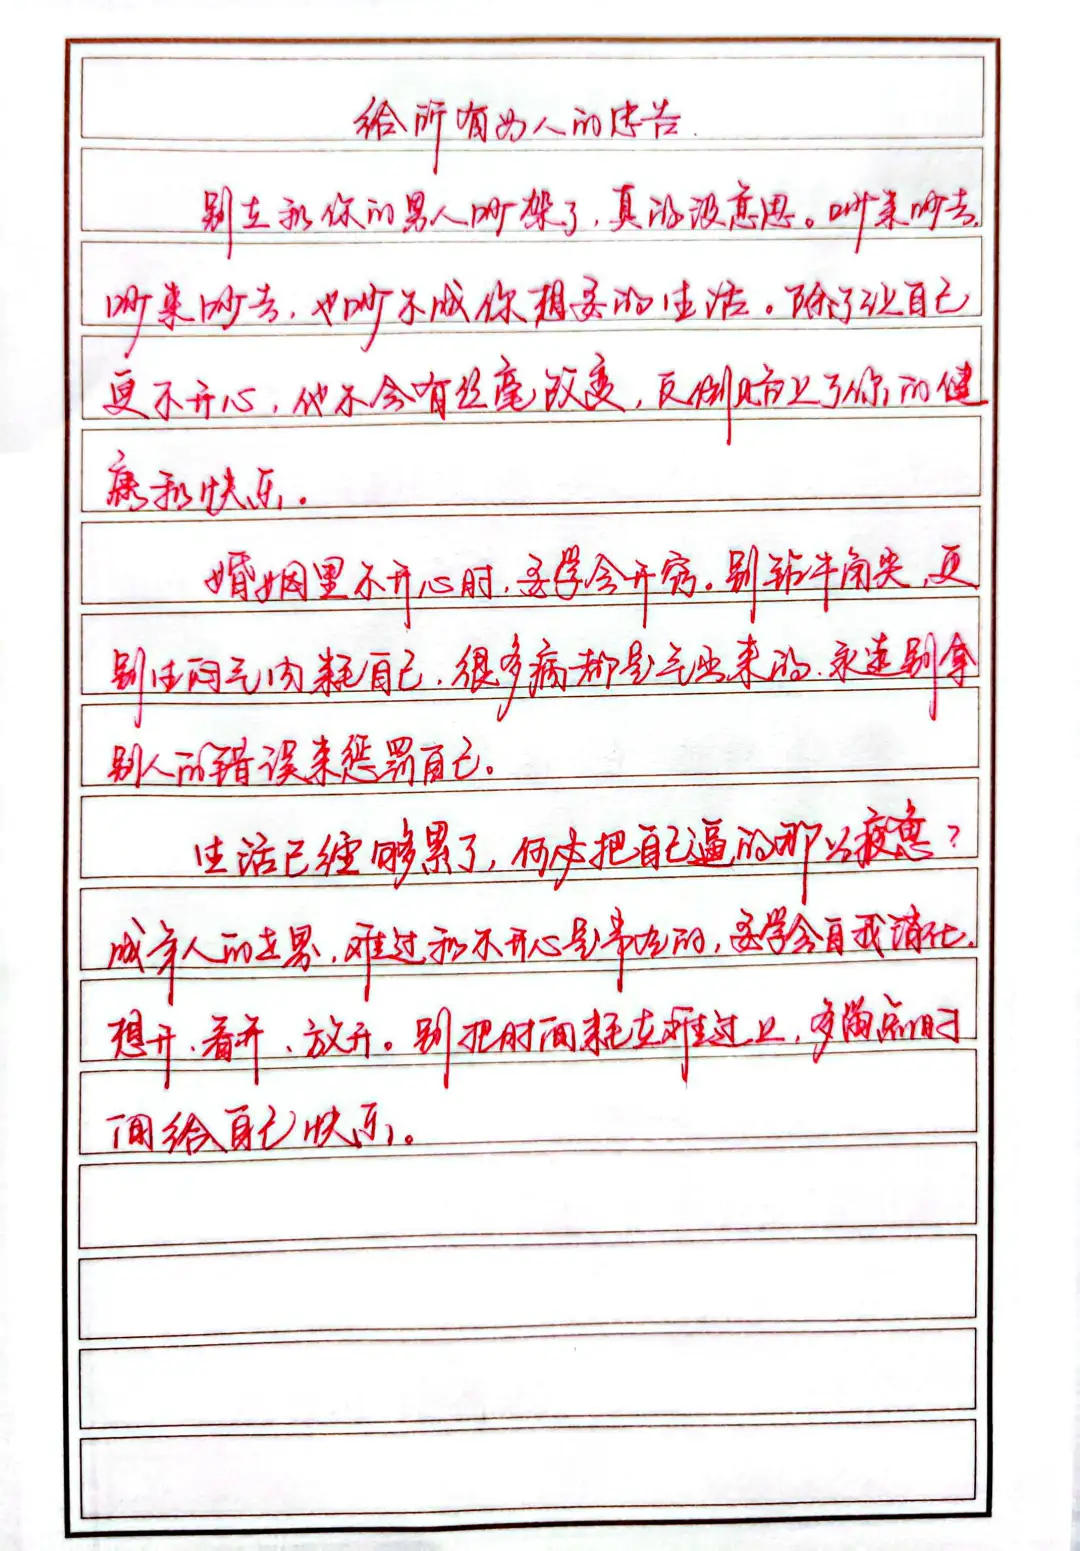 给所有女人的忠告.
别在和你的男人吵架了,真的没意思。吵来吵去,
吵来吵去,也吵不成你想要的生活。除了让自己
更不开心,他不会有丝毫改变,反倒赔上了你的健
康和快乐。
婚姻里不开心时,要学会开窍。别钻牛角尖,更
别生闷气内耗自己,很多病都是气出来的,永远别拿
别人的错误来惩罚自己。
生活已经够累了,何必把自己逼的那么疲惫?
成年人的世界,难过和不开心是常态的,要学会自我消化,
想开、看开、放开。别把时间耗在难过上,多留点时
间给自己快乐。